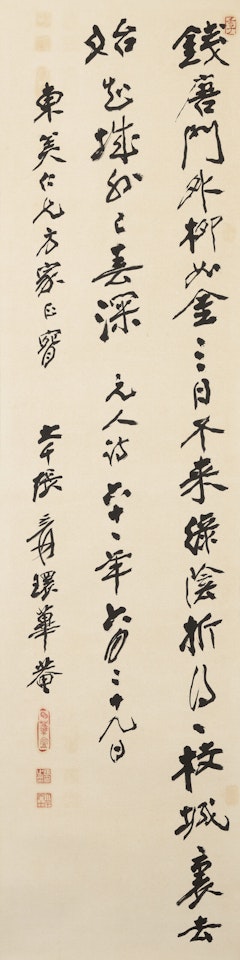 錢唐門外柳如金三日不来綠陰折得一枝城裏去
始知城外已春深 元人詩 六十一年六月二十九日
東美仁兄方家正 大千張爰環蓽菴